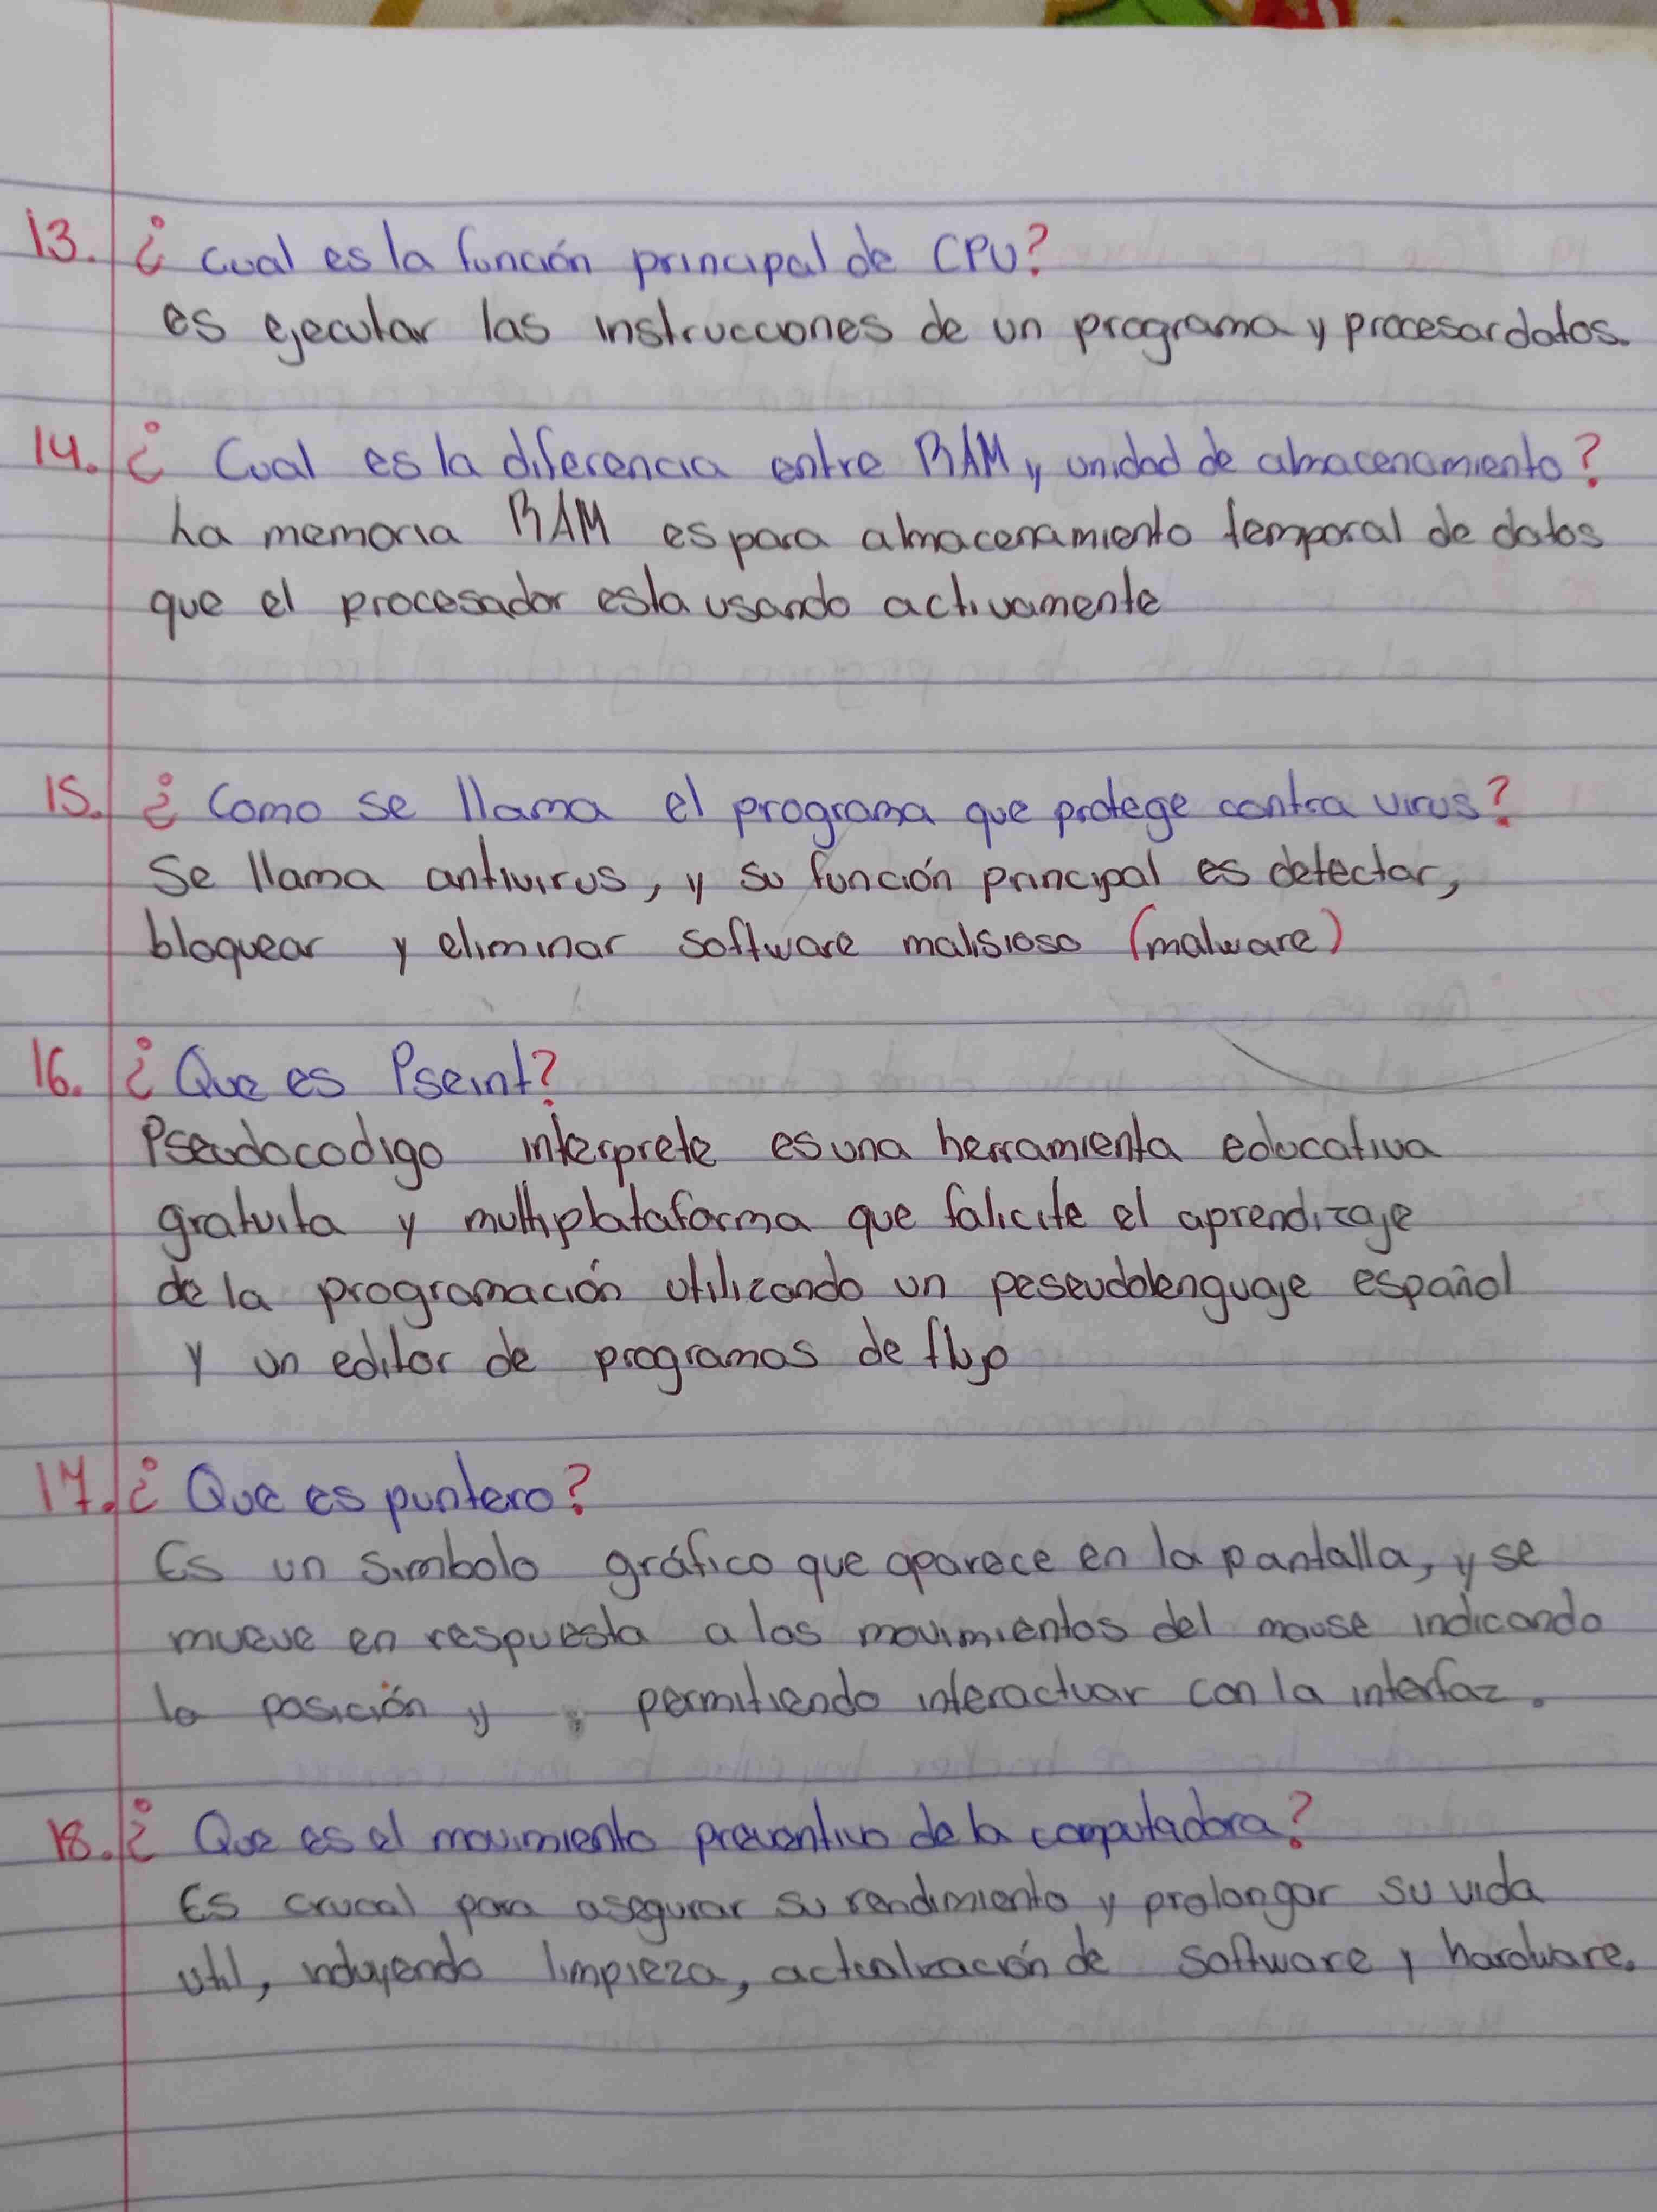 13. ¿ Cual es la función principal de CPU?
es ejecutar las instrucciones de un programa y procesar datos.
14. ¿ Cual es la diferencia entre RAM y unidad de almacenamiento?
La memoria RAM es para almacenamiento temporal de datos
que el procesador esta usando activamente
15. ¿ Como se llama el programa que protege contra virus?
Se llama antivirus, y su función principal es detectar,
bloquear y eliminar software malisioso (malware)
16. ¿ Que es Pseint?
Pseudocodigo interprete es una herramienta educativa
gratuita y multiplataforma que falicite el aprendizaje
de la programación utilizando un peseudolenguaje español
y un editor de programas de flujo
17. ¿ Que es puntero?
Es un simbolo gráfico que aparece en la pantalla, y se
mueve en respuesta a los movimientos del mouse indicando
la posición y permitiendo interactuar con la interfaz.
18. ¿ Que es el movimiento preventivo de la computadora?
Es crucal para asegurar su rendimiento y prolongar su vida
util, incluyendo limpieza, actualización de software y hardware.